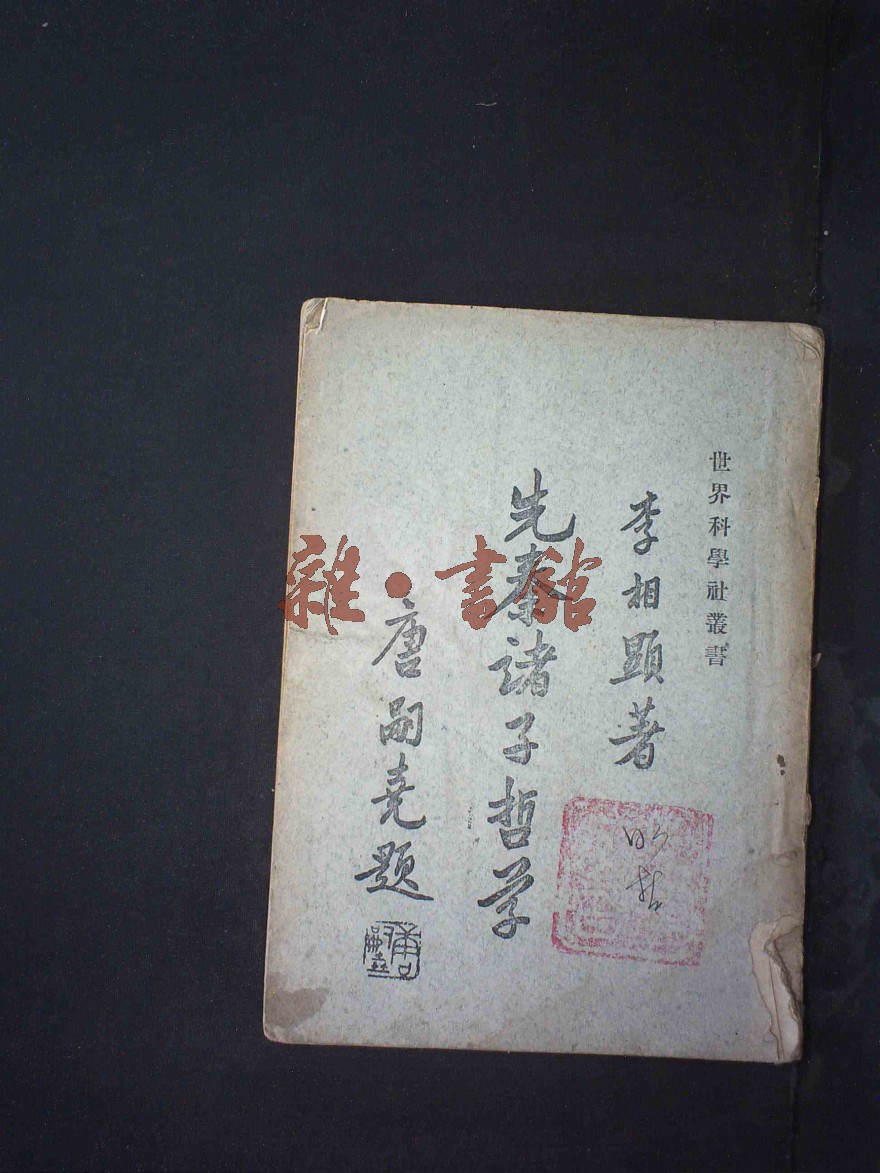 世界科學社叢書
李相顕著
先秦諸子哲学
唐嗣堯題
雜·書館